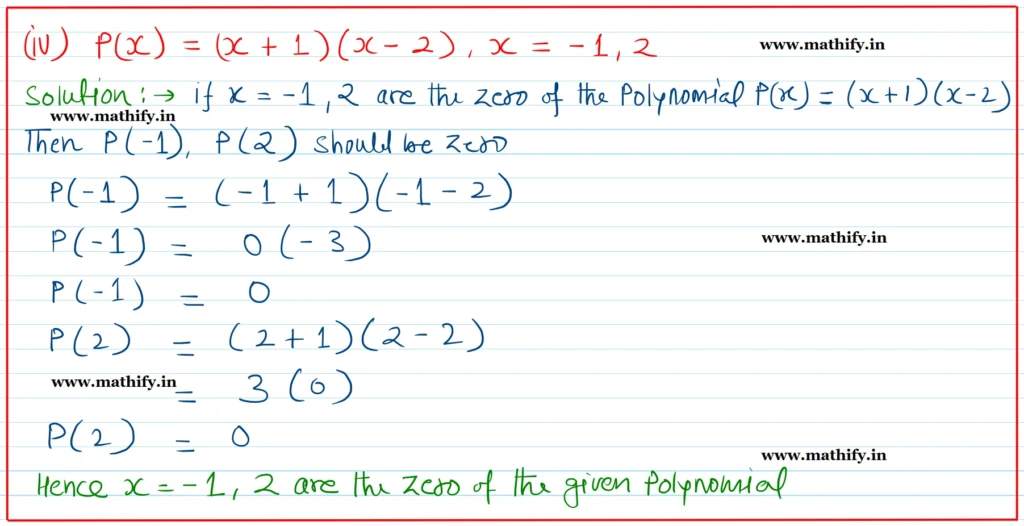 (iv) P(x) = (x + 1)(x - 2), x = -1, 2
www.mathify.in
Solution :→ if x = -1, 2 are the zero of the Polynomial P(x) = (x+1)(x-2)
www.mathify.in
Then P(-1), P(2) should be zero
P(-1) = (-1 + 1)(-1 - 2)
P(-1) = 0 (-3)
www.mathify.in
P(-1) = 0
P(2) = (2+1)(2-2)
www.mathify.in
= 3 (0)
P(2) = 0
www.mathify.in
Hence x = -1, 2 are the zero of the given Polynomial